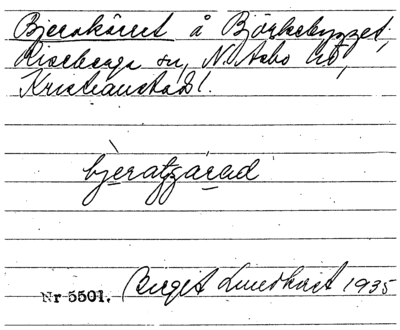 Bjernkärret å Björkebygget,
Riseberga sn, N. Åsbo hd,
Kristianstad l.
bjeratʒärad
Nr 5501. Birget Lundkvist 1935